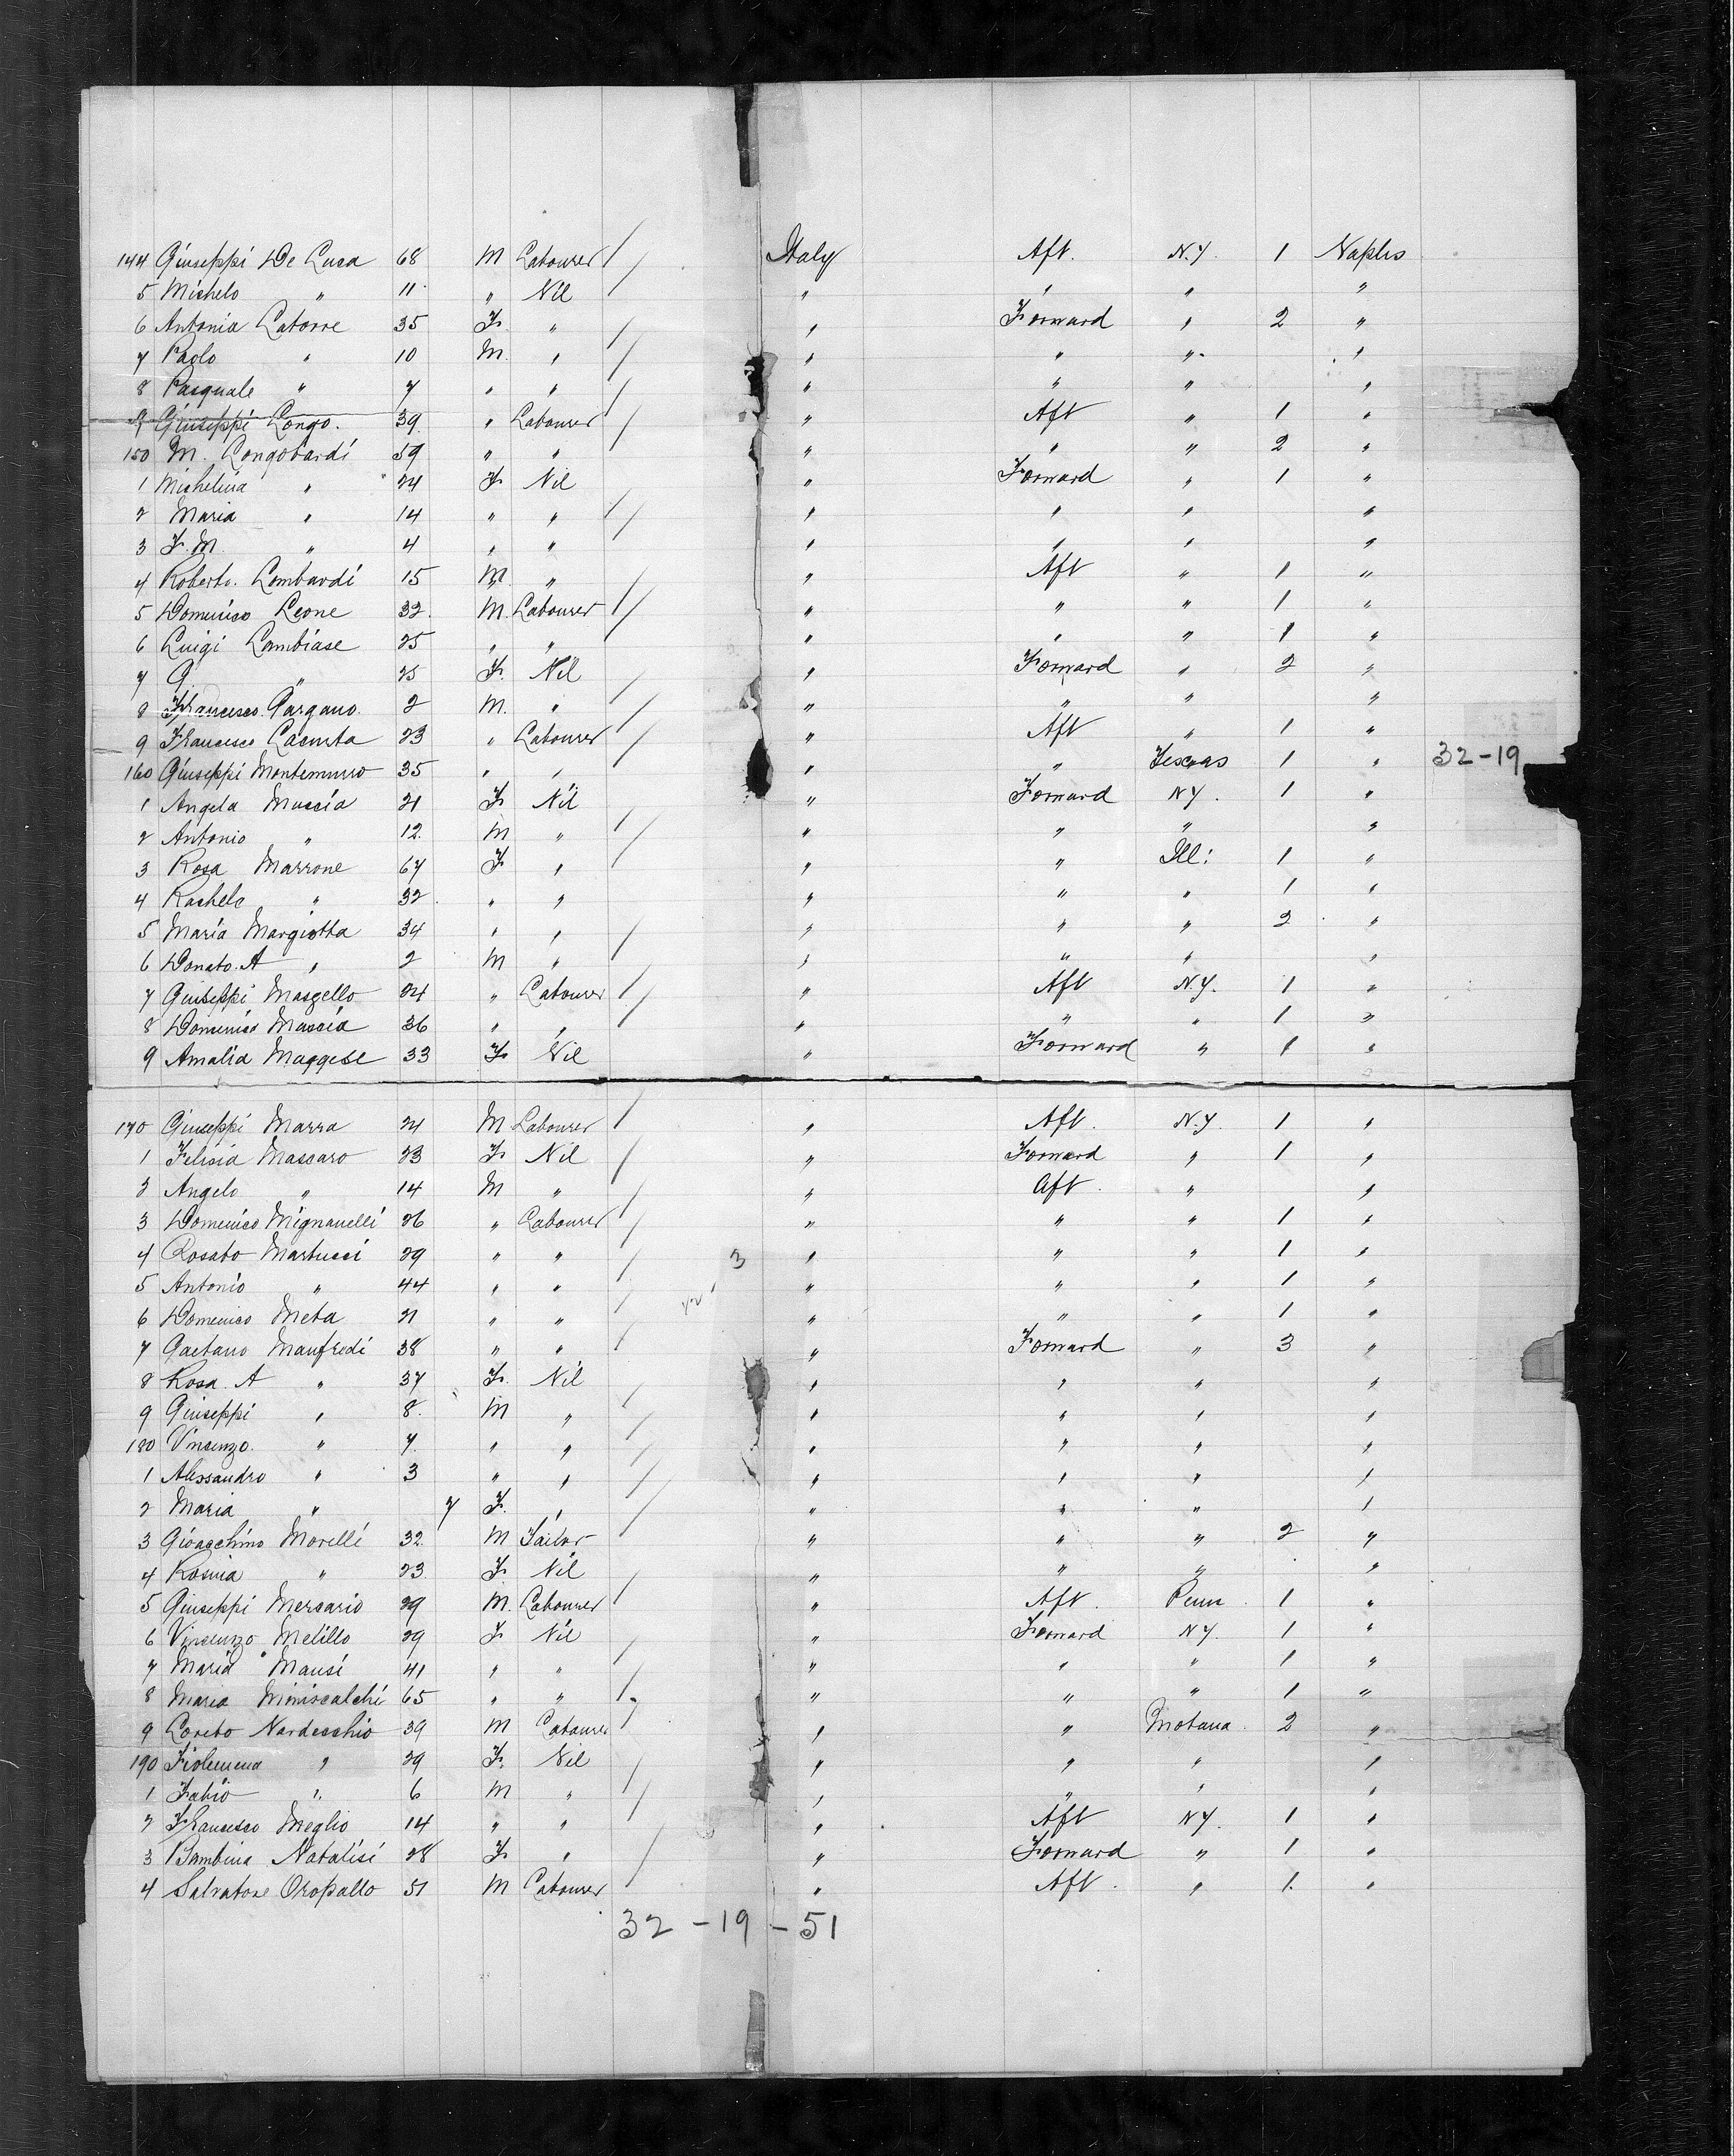 144 Giuseppi De Luca 68 M Labourer Italy Aft. N.Y. 1 Naples
5 Michelo " 11 " Nil " " " "
6 Antonia Latorre 35 F " " Forward " 2 "
7 Paolo " 10 M. " " " " "
8 Pasquale " 7 " " " " " "
9 Giuseppi Longo. 39 " Labourer " Aft " 1 "
150 M. Longobardi 59 " " " " " 2 "
1 Michelina " 24 F Nil " Forward " 1 "
2 Maria " 14 " " " " " "
3 F. M. " 4 " " " " " "
4 Roberto. Lombardi 15 M " " Aft " 1 "
5 Domenico Leone 32. M. Labourer " " " 1 "
6 Luigi Lambiase 25 " " " " " 1 "
7 G. " 25 F. Nil " Forward " 2 "
8 Francesco Gargano. 2 M. " " " " "
9 Francesco Lacurta 23 " Labourer " Aft " 1 "
160 Giuseppi Montemurro 35 " " " " Texas 1 " 32-19
1 Angela Muccia 21 F Nil " Forward N.Y. 1 "
2 Antonio " 12. M " " " " "
3 Rosa Marrone 67 F " " " Ill: 1 "
4 Rachele " 32 " " " " " 1 "
5 Maria Margiotta 34 " " " " " 2 "
6 Donato. A " 2 M " " " " "
7 Giuseppi Masgello 24 " Labourer " Aft N.Y. 1 "
8 Domenico Muscia 36 " " " " " 1 "
9 Amalia Maggese 33 F Nil " Forward " 1 "
170 Giuseppi Marra 24 M Labourer " Aft. N.Y. 1 "
1 Felicia Mascaro 23 F Nil " Forward " 1 "
2 Angelo " 14 M " " Aft. " "
3 Domenico Mignanelli 26 " Labourer " " " 1 "
4 Rosato Martucci 29 " " 3 " " " 1 "
5 Antonio " 44 " " " " " 1 "
6 Domenico Meta 21 " " " " " 1 "
7 Gaetano Manfredi 38 " " " Forward " 3 "
8 Rosa. A " 37 F. Nil " " " "
9 Giuseppi " 8. M " " " " "
180 Vincenzo. " 7. " " " " " "
1 Alessandro " 3 " " " " " "
2 Maria " 7 F. " " " " "
3 Gioacchino Morelli 32. M Tailor " " " 2 "
4 Rosina " 23 F Nil " " " "
5 Giuseppi Mercario 29 M. Labourer " Aft. Penn. 1 "
6 Vincenzo Melillo 29 F Nil " Forward N.Y. 1 "
7 Maria Mansi 41 " " " " " 1 "
8 Maria Miniscalchi 65 " " " " " 1 "
9 Loreto Nardecchio 39 M Labourer " " Motana. 2 "
190 Fiolemena " 29 F. Nil " " " "
1 Fabio " 6 M " " " " "
2 Francesco Meglio 14 " " " Aft N.Y. 1 "
3 Bambina Natalisi 28 F " " Forward " 1 "
4 Salvatore Oropallo 51 M Labourer " Aft. " 1. "
32 - 19 - 51